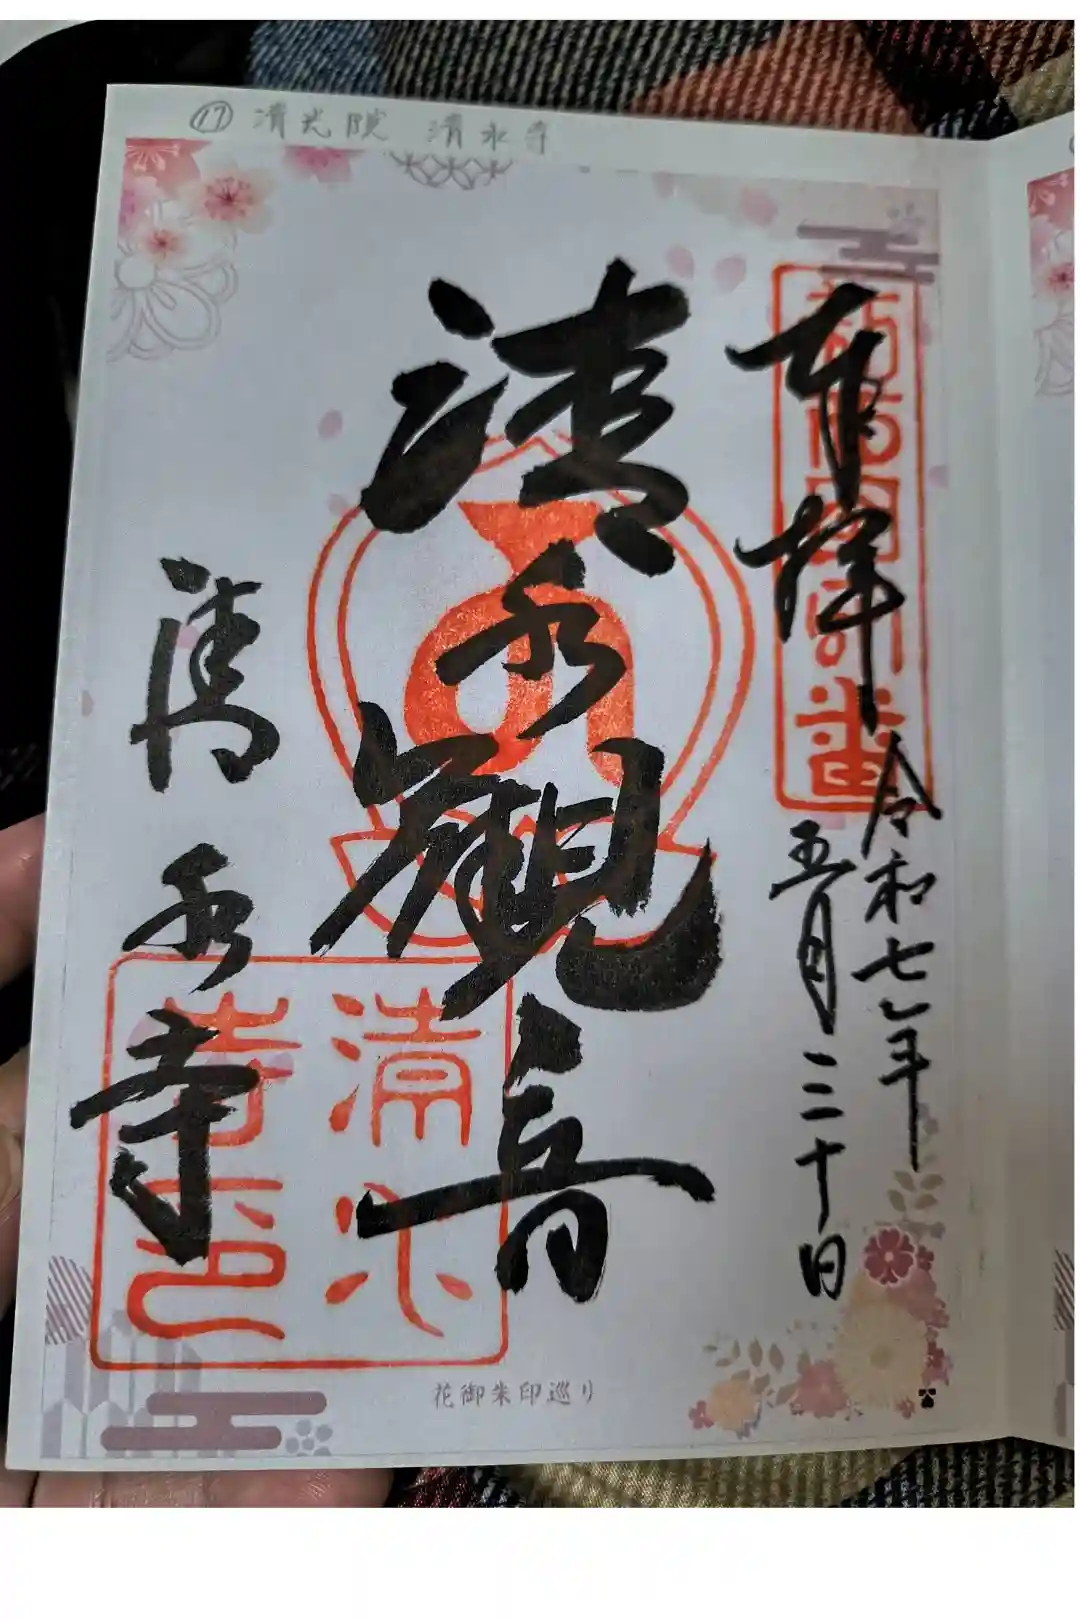 ⑰ 清光院 清水寺
奉拝
令和七年
五月三十日
清水観音
清水寺
清水
寺印
花御朱印巡り